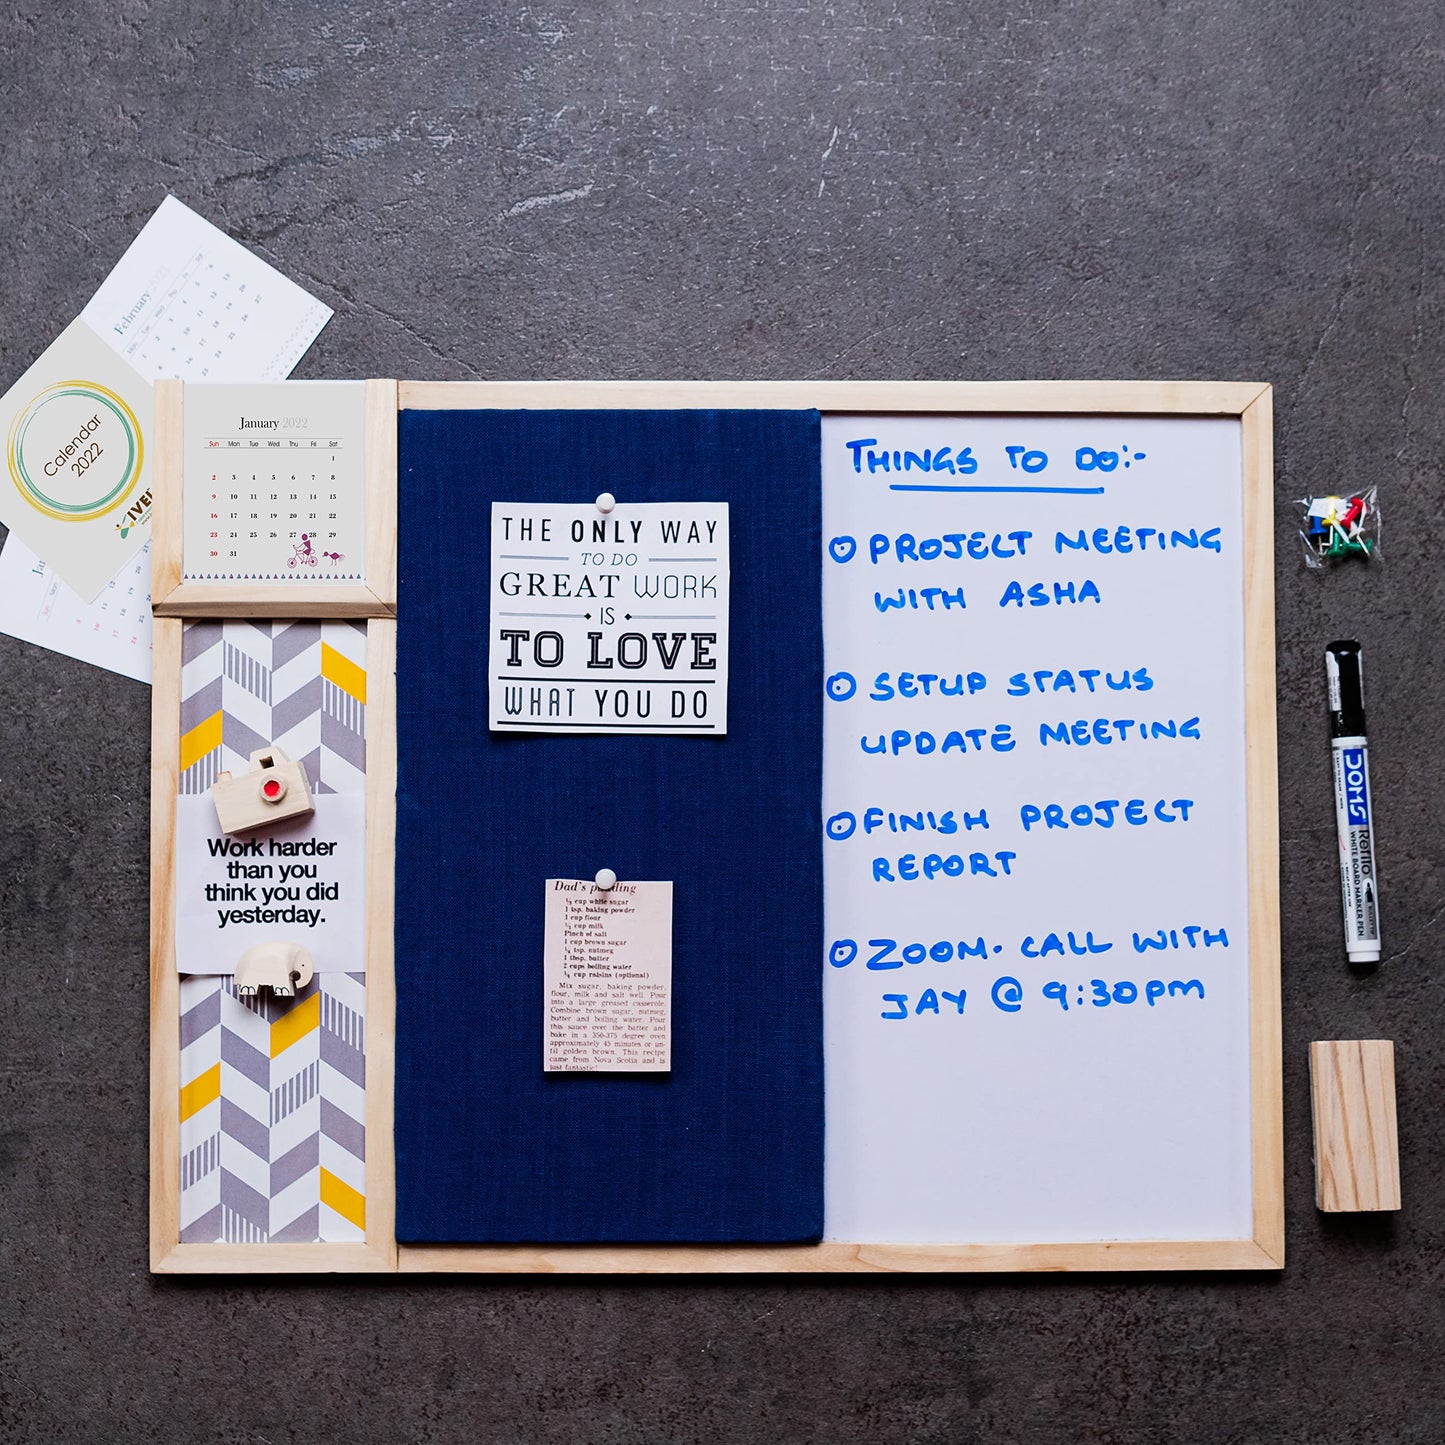 February 2021
Mon Tue Wed Thu Fri
Calendar
2022
January 2022
Sun Mon Tue Wed Thu Fri Sat
1
2 3 4 5 6 7 8
9 10 11 12 13 14 15
16 17 18 19 20 21 22
23 24 25 26 27 28 29
30 31
Work harder
than you
think you did
yesterday.
THE ONLY WAY
TO DO
GREAT WORK
IS
TO LOVE
WHAT YOU DO
Dad's pudding
1/2 cup white sugar
1 tsp. baking powder
1 cup flour
1/2 cup milk
Pinch of salt
1 cup brown sugar
1/4 tsp. nutmeg
1 tbsp. butter
2 cups boiling water
3/4 cup raisins (optional)
Mix sugar, baking powder,
flour, milk and salt well. Pour
into a large greased casserole.
Combine brown sugar, nutmeg,
butter and boiling water. Pour
this sauce over the batter and
bake in a 350-375 degree oven
approximately 45 minutes or un-
til golden brown. This recipe
came from Nova Scotia and is
just fantastic!
THINGS TO DO:-
PROJECT MEETING
WITH ASHA
SETUP STATUS
UPDATE MEETING
FINISH PROJECT
REPORT
ZOOM. CALL WITH
JAY @ 9:30pm
DOMS
Refilo
WHITE BOARD MARKER PEN